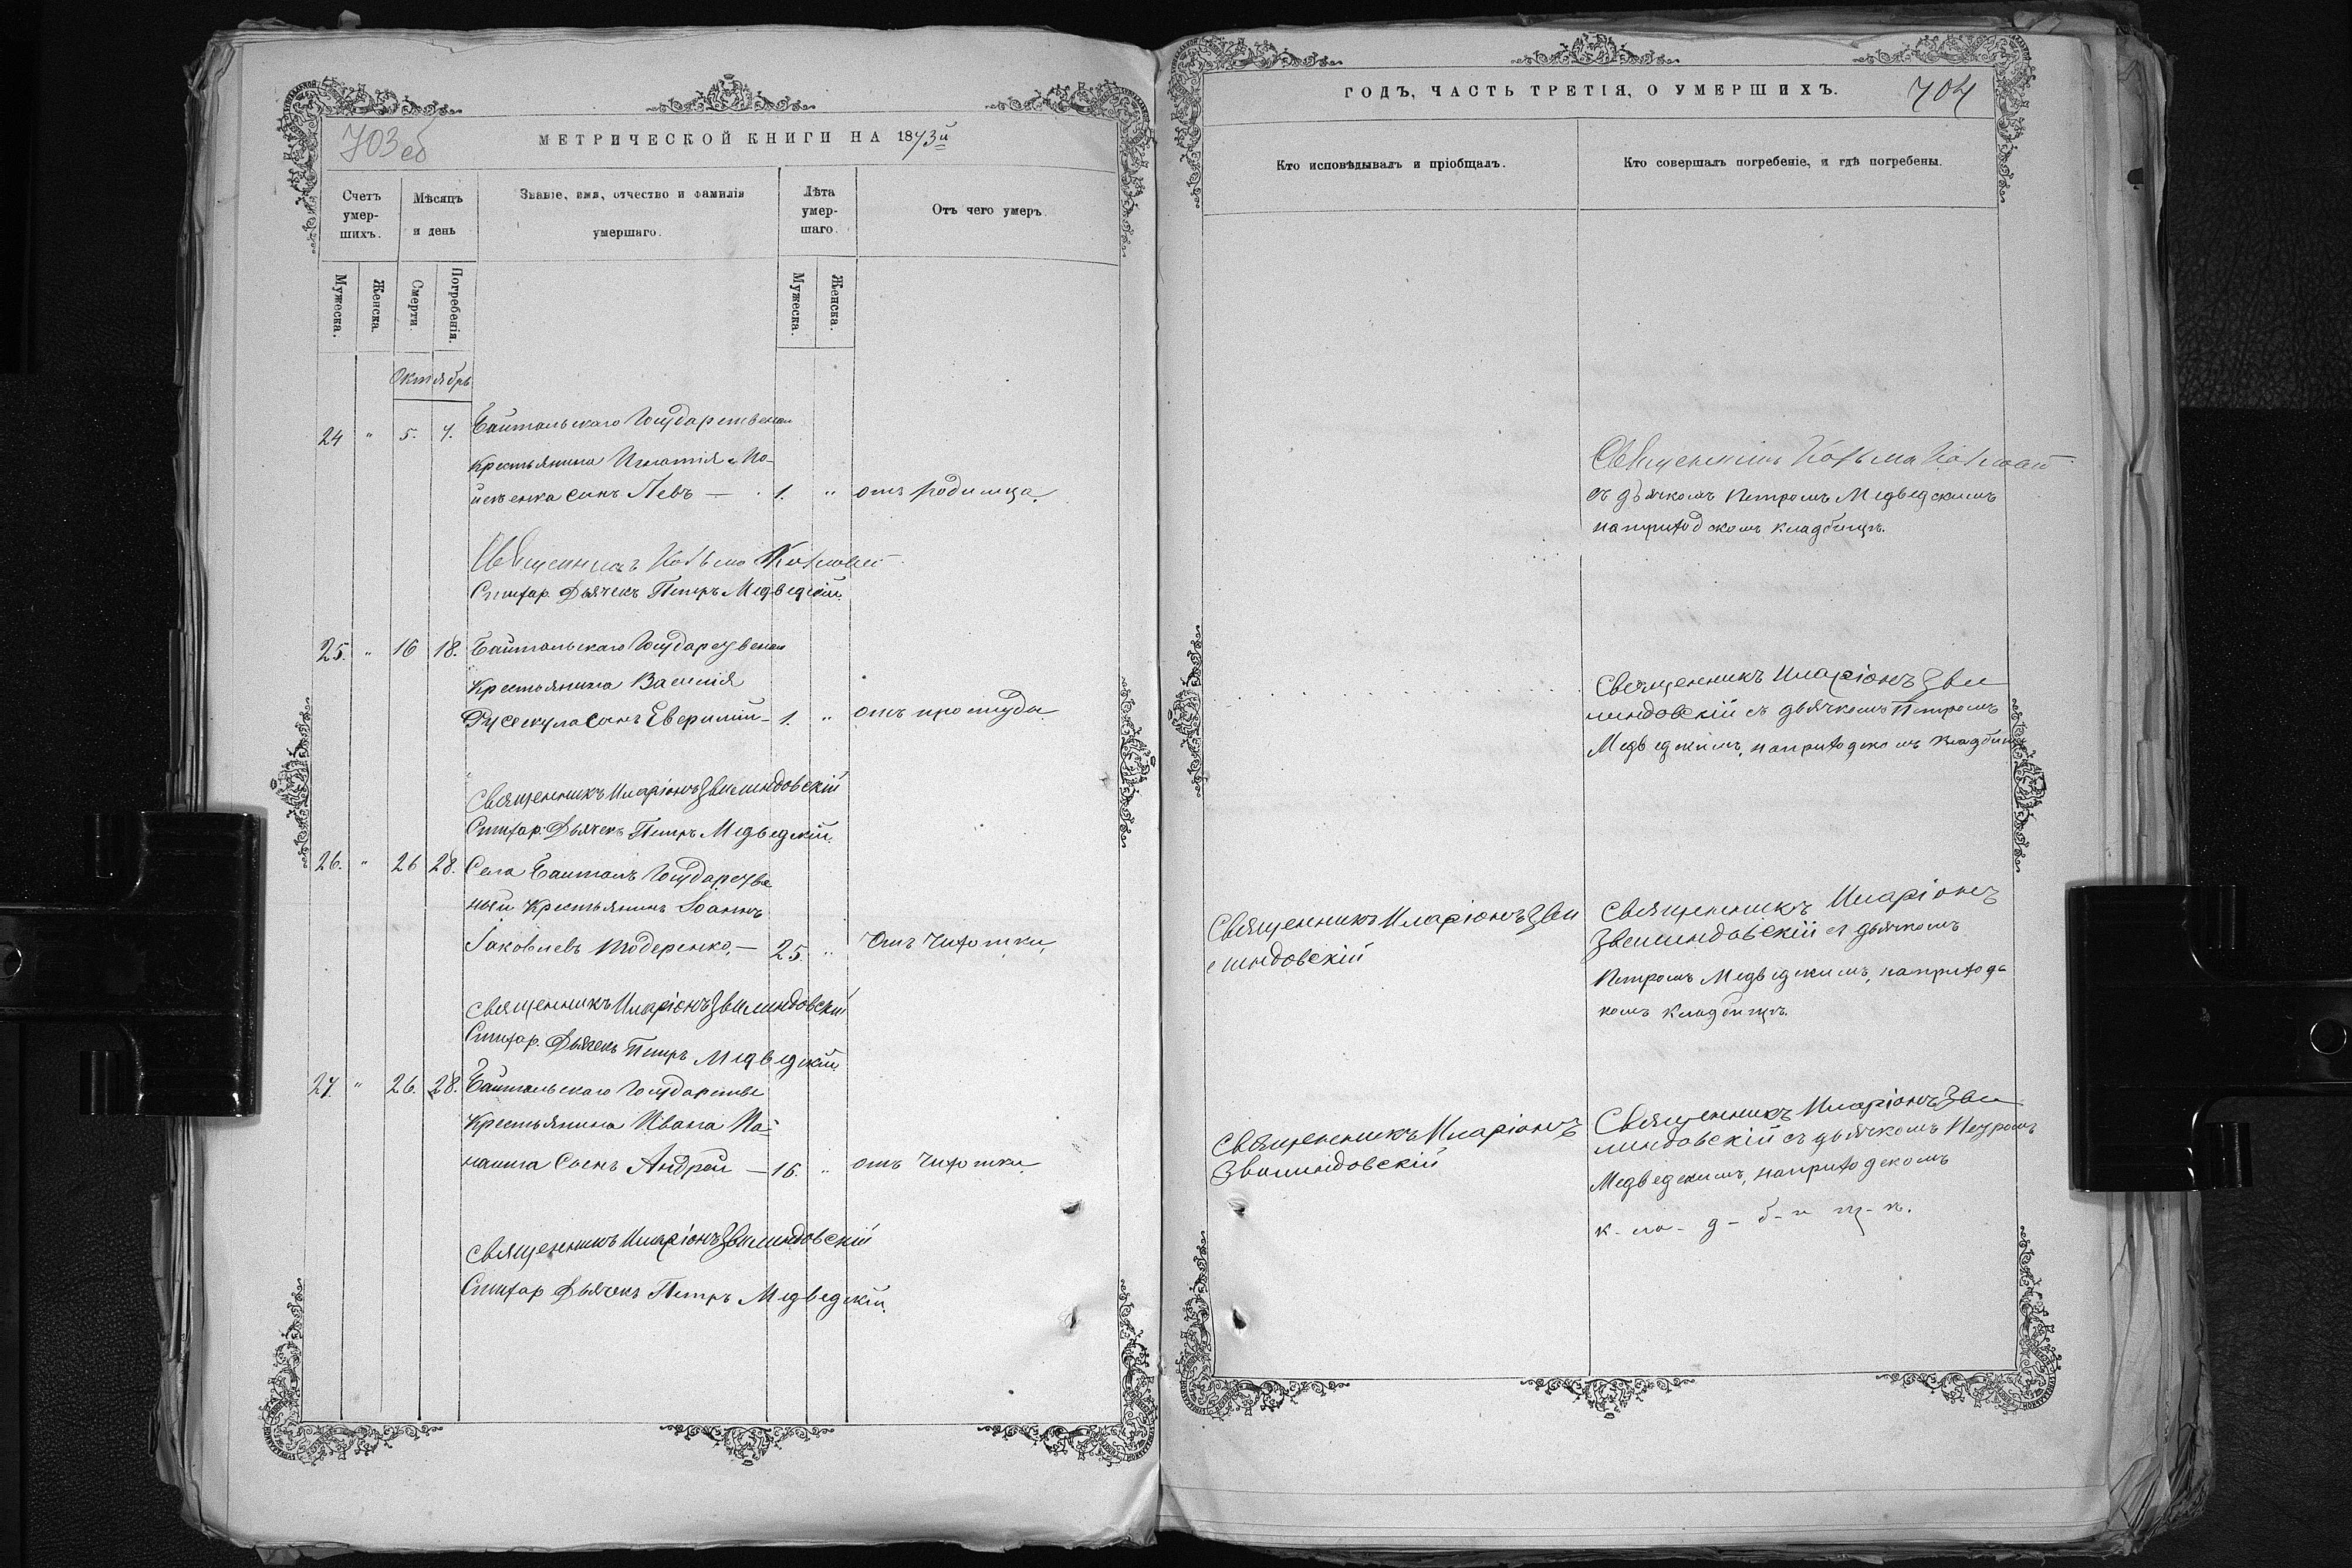 703 об
МЕТРИЧЕСКОЙ КНИГИ НА 1873й
Счетъ умер-шихъ.
Мѣсяцъ и день
Званіе, имя, отчество и фамилія умершаго.
Лѣта умер-шаго.
Отъ чего умеръ.
Мужеска.
Женска.
Смерти.
Погребенія.
Мужеска.
Женска.
Октябрь
24 " 5. 7. Байтальскаго Государствен
Крестьянина Игнатія
сынъ Левъ — 1. " отъ родимца
Священникъ Козьма
Стихар. Дьячекъ Петръ Медведскій.
25. " 16 18. Байтальскаго Государствен
Крестьянина Василія
сынъ — 1. " отъ простуды
Священникъ Иларіонъ Звилиндовскій
Стихар. Дьячекъ Петръ Медведскій.
26. " 26 28. Села Байталъ Государстве
ный Крестьянинъ Іоаннъ
Іаковлевъ Тодеренко, — 25. " Отъ Чихотки,
Священникъ Иларіонъ Звилиндовскій
Стихар. Дьячекъ Петръ Медведскій
27. " 26. 28. Байтальскаго Государстве
Крестьянина Ивана
Сынъ Андрей — 16. " отъ Чихотки
Священникъ Иларіонъ Звилиндовскій
Стихар Дьячекъ Петръ Медведскій.
ГОДЪ, ЧАСТЬ ТРЕТІЯ, О УМЕРШИХЪ.
704
Кто исповѣдывалъ и пріобщалъ.
Кто совершалъ погребеніе, и гдѣ погребены.
Священникъ Козьма
съ дьячкомъ Петромъ Медведскимъ
на приходскомъ кладбищѣ.
Священникъ Иларіонъ Зви
линдовскій съ дьячкомъ Петромъ
Медведскимъ, на приходскомъ кладбищѣ
Священникъ Иларіонъ Зви
линдовскій
Священникъ Иларіонъ
Звилиндовскій съ дьячкомъ
Петромъ Медведскимъ, на приходс
комъ кладбищѣ.
Священникъ Иларіонъ
Звилиндовскій
Священникъ Иларіонъ Зви
линдовскій съ дьячкомъ Петромъ
Медведскимъ, на приходскомъ
к-ла-д-б-и-щ-ѣ.